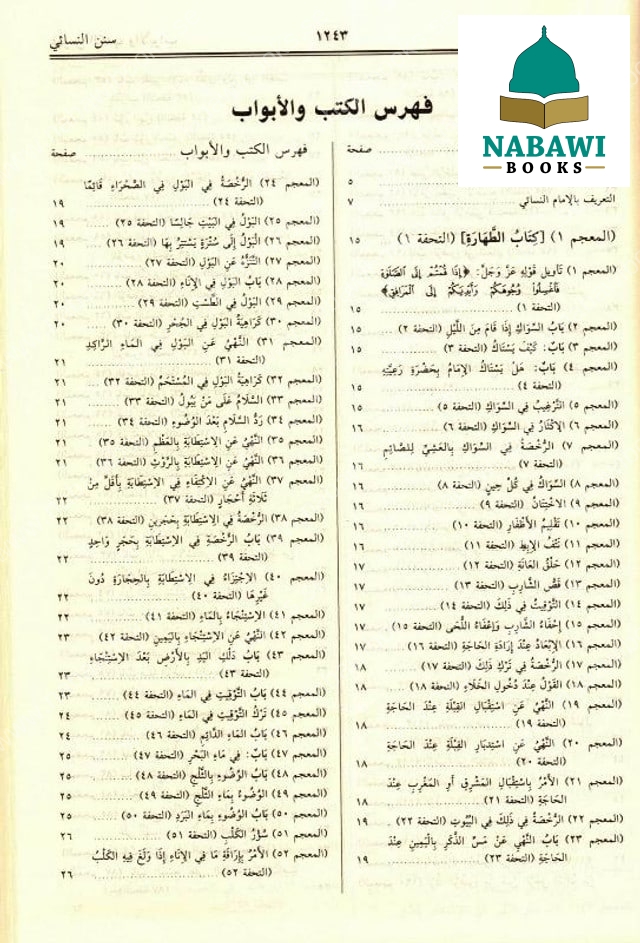 سنن النسائي
١٢٤٣
NABAWI
BOOKS
فهرس الكتب والأبواب
صفحة
٥
التعريف بالإمام النسائي ٧
(المعجم ١) [كِتَابُ الطَّهَارَةِ] (التحفة ١) ١٥
(المعجم ١) تأويل قوله عزَّ وجلَّ: ﴿إِذَا قُمْتُمْ إِلَى الصَّلَوٰةِ
فَاغْسِلُوا وُجُوهَكُمْ وَأَيْدِيَكُمْ إِلَى الْمَرَافِقِ﴾
(التحفة ١) ١٥
(المعجم ٢) بَابُ السِّوَاكِ إِذَا قَامَ مِنَ اللَّيْلِ (التحفة ٢) ١٥
(المعجم ٣) بَابٌ: كَيْفَ يَسْتَاكُ (التحفة ٣) ١٥
(المعجم ٤) بَابٌ: هَلْ يَسْتَاكُ الإِمَامُ بِحَضْرَةِ رَعِيَّتِهِ
(التحفة ٤) ١٥
(المعجم ٥) التَّرْغِيبُ فِي السِّوَاكِ (التحفة ٥) ١٥
(المعجم ٦) الإِكْثَارُ فِي السِّوَاكِ (التحفة ٦) ١٦
(المعجم ٧) الرُّخْصَةُ فِي السِّوَاكِ بِالعَشِيِّ لِلصَّائِمِ
(التحفة ٧) ١٦
(المعجم ٨) السِّوَاكُ فِي كُلِّ حِينٍ (التحفة ٨) ١٦
(المعجم ٩) الاخْتِتَانُ (التحفة ٩) ١٦
(المعجم ١٠) تَقْلِيمُ الأَظْفَارِ (التحفة ١٠) ١٦
(المعجم ١١) نَتْفُ الإِبِطِ (التحفة ١١) ١٦
(المعجم ١٢) حَلْقُ العَانَةِ (التحفة ١٢) ١٧
(المعجم ١٣) قَصُّ الشَّارِبِ (التحفة ١٣) ١٧
(المعجم ١٤) التَّوْقِيتُ فِي ذَلِكَ (التحفة ١٤) ١٧
(المعجم ١٥) إِحْفَاءُ الشَّارِبِ وَإِعْفَاءُ اللِّحَى (التحفة ١٥) ١٧
(المعجم ١٦) الإِبْعَادُ عِنْدَ إِرَادَةِ الحَاجَةِ (التحفة ١٦) ١٧
(المعجم ١٧) الرُّخْصَةُ فِي تَرْكِ ذَلِكَ (التحفة ١٧) ١٨
(المعجم ١٨) القَوْلُ عِنْدَ دُخُولِ الخَلَاءِ (التحفة ١٨) ١٨
(المعجم ١٩) النَّهْيُ عَنِ اسْتِقْبَالِ القِبْلَةِ عِنْدَ الحَاجَةِ
(التحفة ١٩) ١٨
(المعجم ٢٠) النَّهْيُ عَنِ اسْتِدبَارِ القِبْلَةِ عِنْدَ الحَاجَةِ
(التحفة ٢٠) ١٨
(المعجم ٢١) الأَمْرُ بِاسْتِقْبَالِ المَشْرِقِ أَوِ المَغْرِبِ عِنْدَ
الحَاجَةِ (التحفة ٢١) ١٨
(المعجم ٢٢) الرُّخْصَةُ فِي ذَلِكَ فِي البُيُوتِ (التحفة ٢٢) ١٩
(المعجم ٢٣) بَابُ النَّهْيِ عَنْ مَسِّ الذَّكَرِ بِالْيَمِينِ عِنْدَ
الحَاجَةِ (التحفة ٢٣) ١٩
فهرس الكتب والأبواب صفحة
(المعجم ٢٤) الرُّخْصَةُ فِي البَوْلِ فِي الصَّحْرَاءِ قَائِمًا
(التحفة ٢٤) ١٩
(المعجم ٢٥) البَوْلُ فِي البَيْتِ جَالِسًا (التحفة ٢٥) ١٩
(المعجم ٢٦) الْبَوْلُ إِلَى سُتْرَةٍ يَسْتَتِرُ بِهَا (التحفة ٢٦) ١٩
(المعجم ٢٧) التَّنَزُّهُ عَنِ البَوْلِ (التحفة ٢٧) ٢٠
(المعجم ٢٨) بَابُ البَوْلِ فِي الإِنَاءِ (التحفة ٢٨) ٢٠
(المعجم ٢٩) البَوْلُ فِي الطَّسْتِ (التحفة ٢٩) ٢٠
(المعجم ٣٠) كَرَاهِيَةُ البَوْلِ فِي الجُحْرِ (التحفة ٣٠) ٢٠
(المعجم ٣١) النَّهْيُ عَنِ البَوْلِ فِي المَاءِ الرَّاكِدِ
(التحفة ٣١) ٢١
(المعجم ٣٢) كَرَاهِيَةُ البَوْلِ فِي المُسْتَحَمِّ (التحفة ٣٢) ٢١
(المعجم ٣٣) السَّلَامُ عَلَى مَنْ يَبُولُ (التحفة ٣٣) ٢١
(المعجم ٣٤) رَدُّ السَّلَامِ بَعْدَ الوُضُوءِ (التحفة ٣٤) ٢١
(المعجم ٣٥) النَّهْيُ عَنِ الاِسْتِطَابَةِ بِالعَظْمِ (التحفة ٣٥) ٢١
(المعجم ٣٦) النَّهْيُ عَنِ الاِسْتِطَابَةِ بِالرَّوْثِ (التحفة ٣٦) ٢١
(المعجم ٣٧) النَّهْيُ عَنِ الاِكْتِفَاءِ فِي الاِسْتِطَابَةِ بِأَقَلَّ مِنْ
ثَلَاثَةِ أَحْجَارٍ (التحفة ٣٧) ٢٢
(المعجم ٣٨) الرُّخْصَةُ فِي الاِسْتِطَابَةِ بِحَجَرَيْنِ (التحفة ٣٨) ٢٢
(المعجم ٣٩) بَابُ الرُّخْصَةِ فِي الاِسْتِطَابَةِ بِحَجَرٍ وَاحِدٍ
(التحفة ٣٩) ٢٢
(المعجم ٤٠) الاِجْتِزَاءُ فِي الاِسْتِطَابَةِ بِالحِجَارَةِ دُونَ
غَيْرِهَا (التحفة ٤٠) ٢٢
(المعجم ٤١) الاِسْتِنْجَاءُ بِالْمَاءِ (التحفة ٤١) ٢٢
(المعجم ٤٢) النَّهْيُ عَنِ الاِسْتِنْجَاءِ بِالْيَمِينِ (التحفة ٤٢) ٢٣
(المعجم ٤٣) بَابُ دَلْكِ اليَدِ بِالأَرْضِ بَعْدَ الاِسْتِنْجَاءِ
(التحفة ٤٣) ٢٣
(المعجم ٤٤) بَابُ التَّوْقِيتِ فِي المَاءِ (التحفة ٤٤) ٢٣
(المعجم ٤٥) تَرْكُ التَّوْقِيتِ فِي المَاءِ (التحفة ٤٥) ٢٤
(المعجم ٤٦) بَابُ المَاءِ الدَّائِمِ (التحفة ٤٦) ٢٤
(المعجم ٤٧) بَابٌ: فِي مَاءِ البَحْرِ (التحفة ٤٧) ٢٥
(المعجم ٤٨) بَابُ الوُضُوءِ بِالثَّلْجِ (التحفة ٤٨) ٢٥
(المعجم ٤٩) الوُضُوءُ بِمَاءِ الثَّلْجِ (التحفة ٤٩) ٢٥
(المعجم ٥٠) بَابُ الوُضُوءِ بِمَاءِ البَرَدِ (التحفة ٥٠) ٢٥
(المعجم ٥١) سُؤْرُ الكَلْبِ (التحفة ٥١) ٢٦
(المعجم ٥٢) الأَمْرُ بِإِرَاقَةِ مَا فِي الإِنَاءِ إِذَا وَلَغَ فِيهِ الكَلْبُ
(التحفة ٥٢) ٢٦